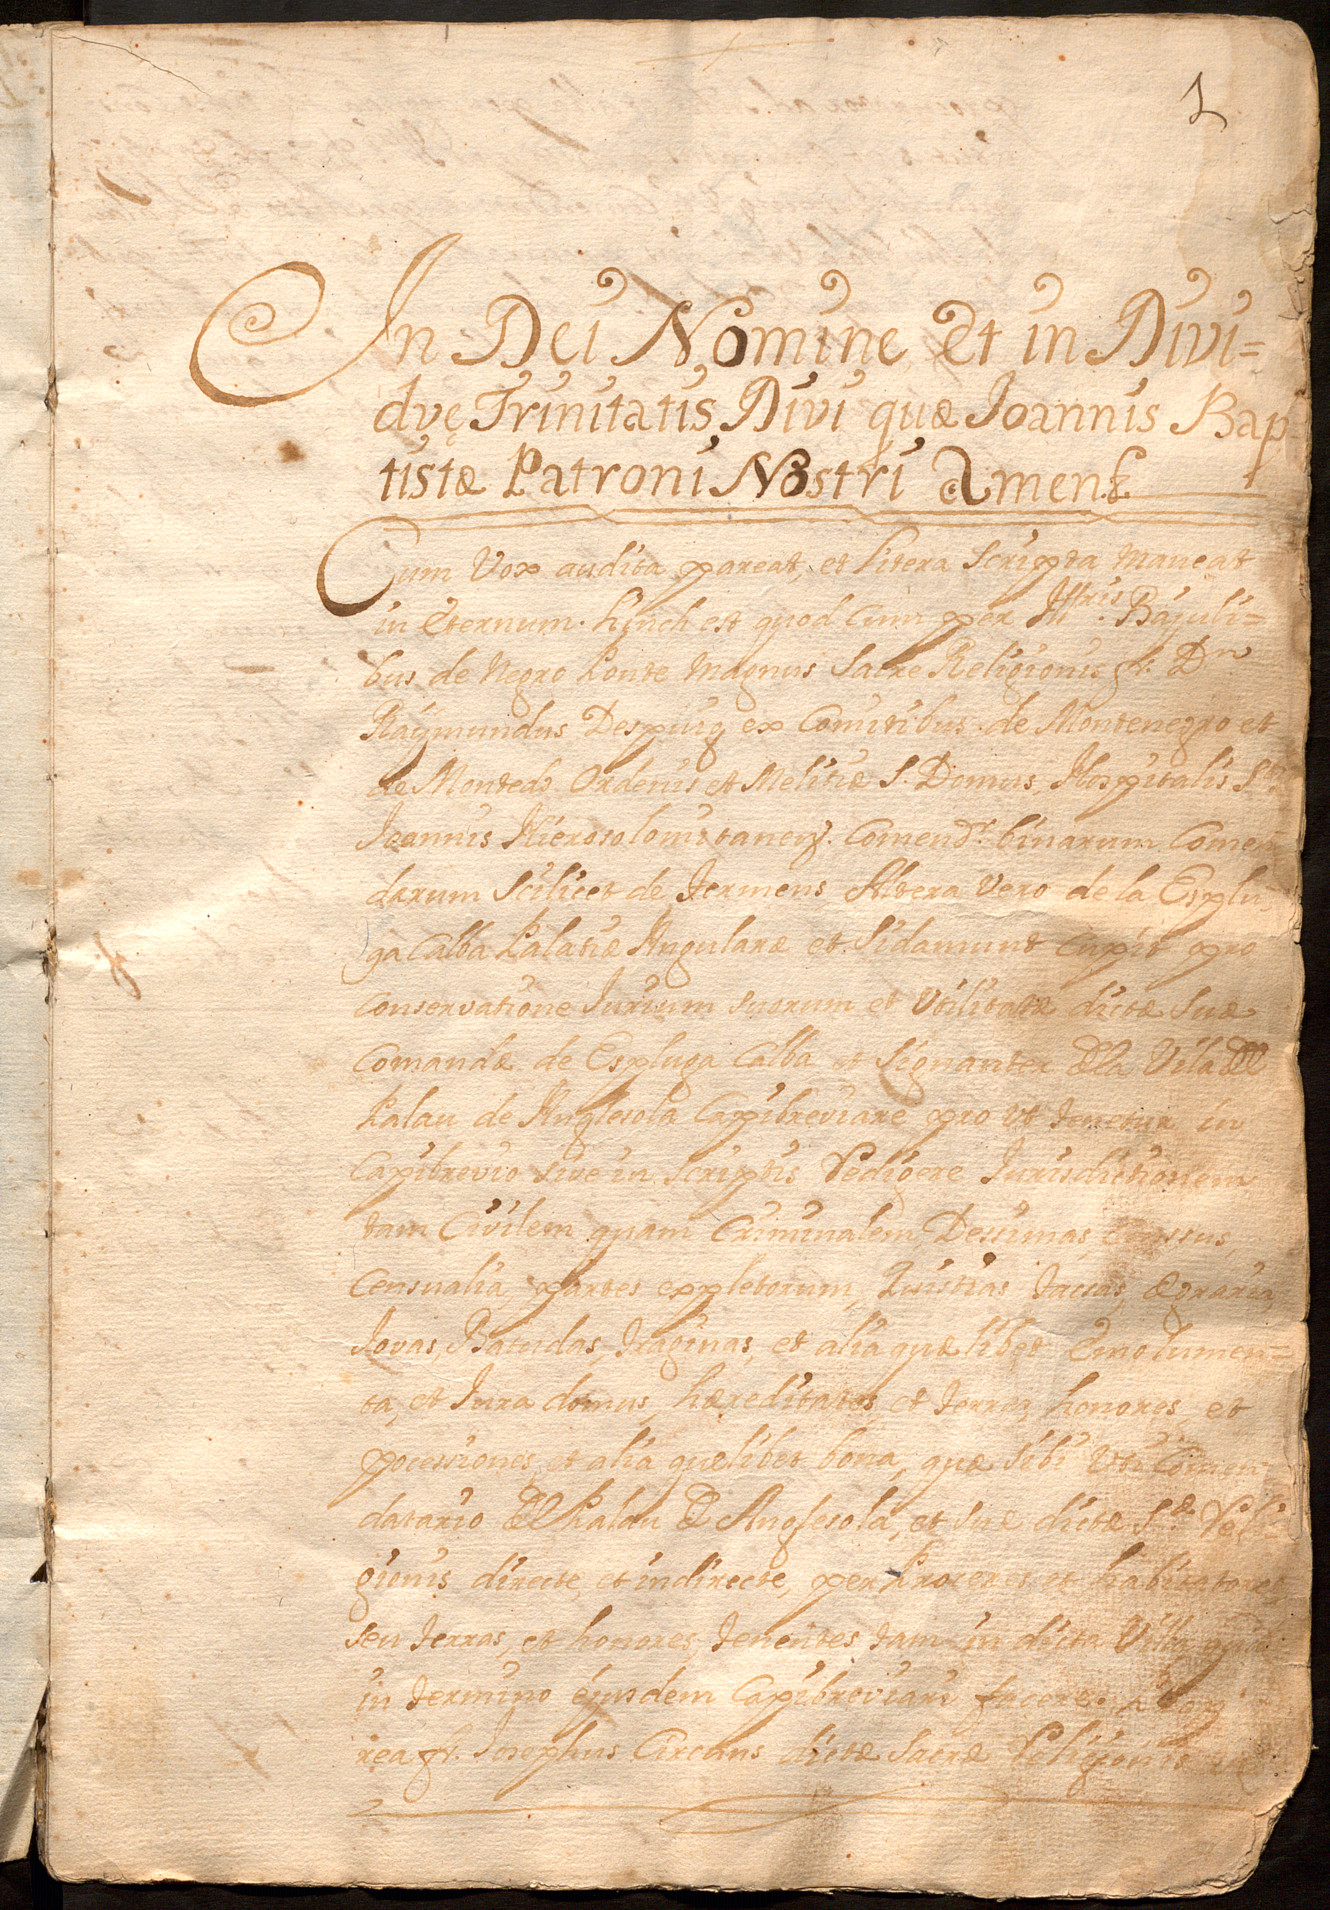 1
In Dei Nomine Et in Divi=
dvę Trinitatis Divi quæ Joannis Bap-
tistæ Patroni Nostri Amen
Cum Vox audita pareat, et litera Scripta Maneat
in Eternum. hinch est quod Cum per Ill.tris Bajuli=
bus de Negro Ponte Magnus Sacre Religionis fr. Dn
Raymundus Despuig ex Comitibus de Montenegro et
de Montedo Ordenis et Melitiæ S. Domus Hospitalis S.ti
Joannis Hierosolomitaney. Comend.r binarum Comen-
darum Scilicet de Termens Altera Vero de la Esplu-
ga Calba Palatiæ Angularæ et Sidamunt Cupit pro
Conservatione Jurium suorum et Utilitatæ dictæ suæ
Comandæ de Espluga Calba et Signanter dela Vila del
Palau de Anglesola Capibreviare pro Ut tenetur in
Capibrevio sive in scriptis Redigere Jurisdictionem
tam Civilem quam Criminalem, Dessimas, Censsus,
Censualia, partes expletorum, Quistias, Jaccas, Ægraria,
Jovas, Batudas, Traginas, et alia quælibet Emolumen=
ta, et Jura domus, hæreditates et Terras, honores, et
pocessiones, et alia quælibet bona, quæ sibi Uti Comen
datario del Palau de Anglesola, et suæ dictæ S.æ Reli-
gionis directe, et indirecte, per Proceres et habitatores,
seu Terras, et honores, Tenentes tam in dicta Villa quam
in Termino ejusdem Capibreviari facere.
rea fr. Josephus Circuns dictæ Sacræ Religionis